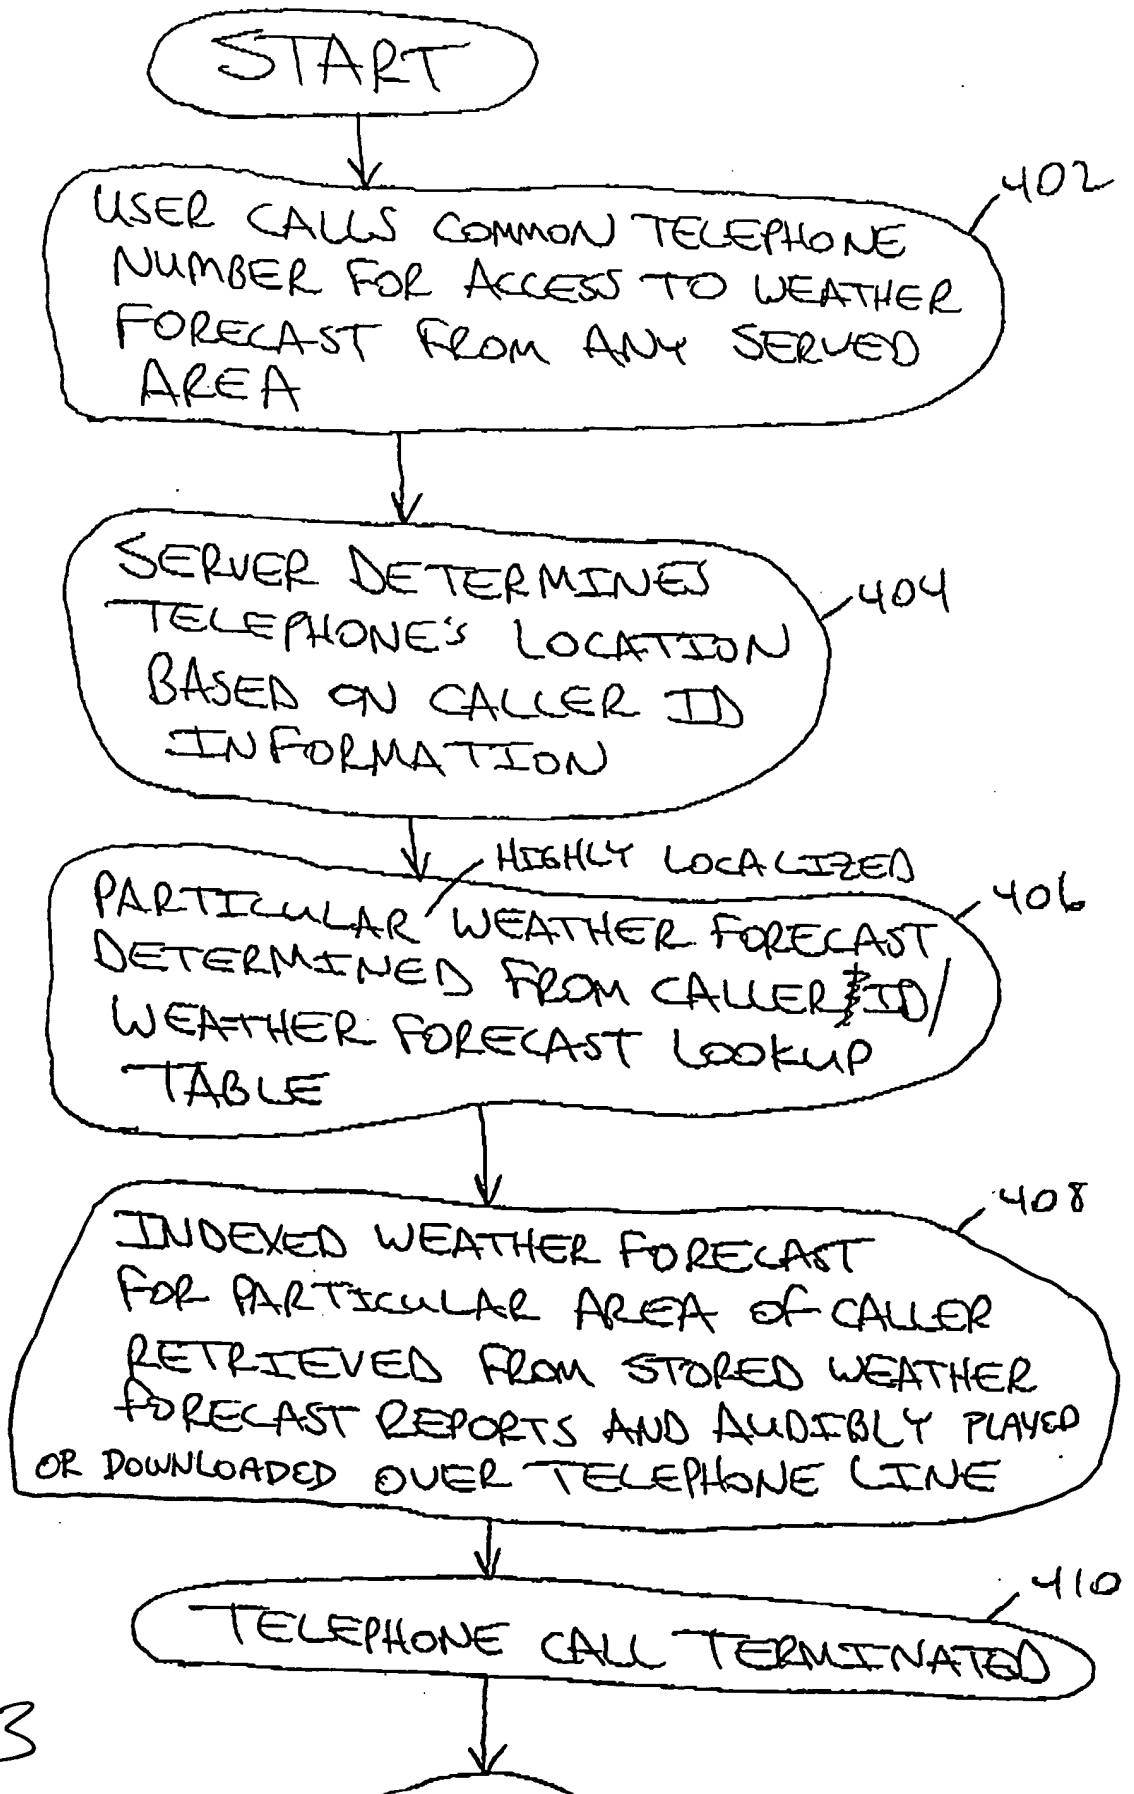 START
402
USER CALLS COMMON TELEPHONE
NUMBER FOR ACCESS TO WEATHER
FORECAST FROM ANY SERVED
AREA
404
SERVER DETERMINES
TELEPHONE'S LOCATION
BASED ON CALLER ID
INFORMATION
HIGHLY LOCALIZED
406
PARTICULAR WEATHER FORECAST
DETERMINED FROM CALLER ID/
WEATHER FORECAST LOOKUP
TABLE
408
INDEXED WEATHER FORECAST
FOR PARTICULAR AREA OF CALLER
RETRIEVED FROM STORED WEATHER
FORECAST REPORTS AND AUDIBLY PLAYED
OR DOWNLOADED OVER TELEPHONE LINE
410
TELEPHONE CALL TERMINATED
3